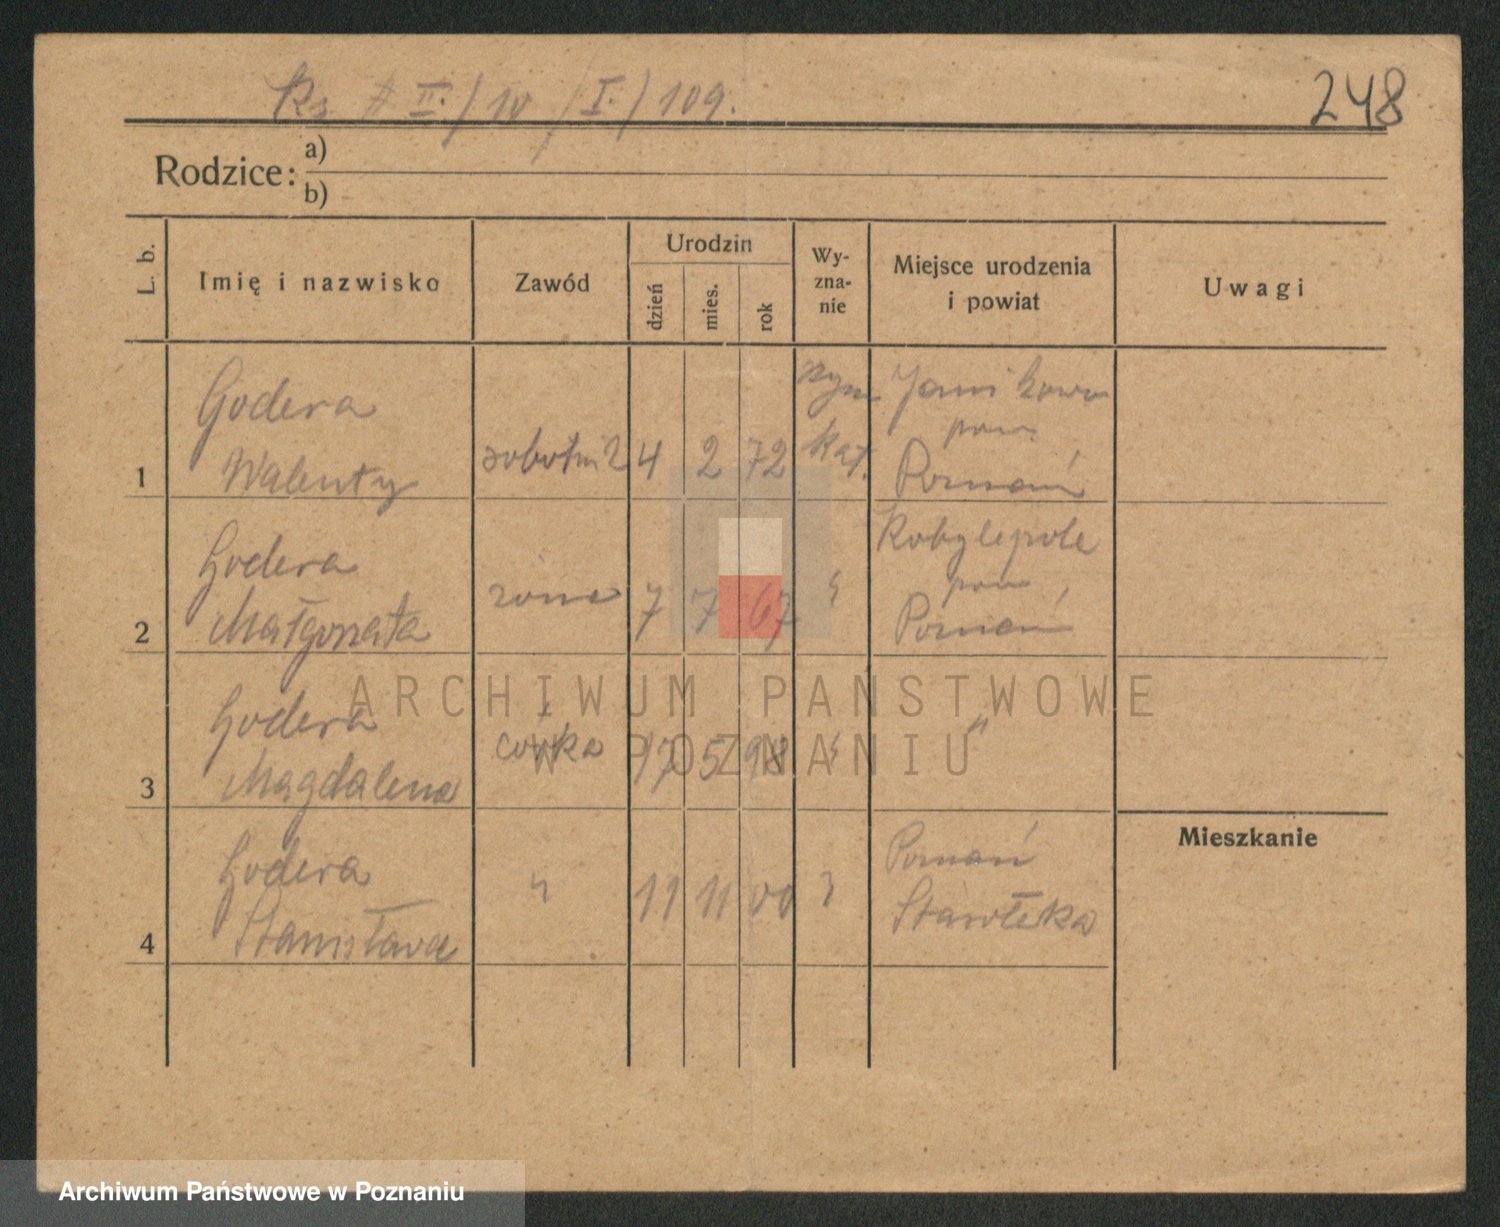 Ks # II./10/I./109.
248
Rodzice:
a)
b)
L. b.
Imię i nazwisko
Zawód
Urodzin
dzień
mies.
rok
Wy-
zna-
nie
Miejsce urodzenia
i powiat
Uwagi
1
Godera
Walenty
robotnik
4
2
72
Rzym
kat.
Janikowo
pow.
Poznań
2
Godera
Małgorzata
żona
7
7
67
"
Kobylepole
pow.
Poznań
3
Godera
Magdalena
córka
17
5
98
"
"
4
Godera
Stanisława
"
11
11
00
"
Poznań
Starołęka
Mieszkanie
ARCHIWUM PAŃSTWOWE
W POZNANIU
Archiwum Państwowe w Poznaniu